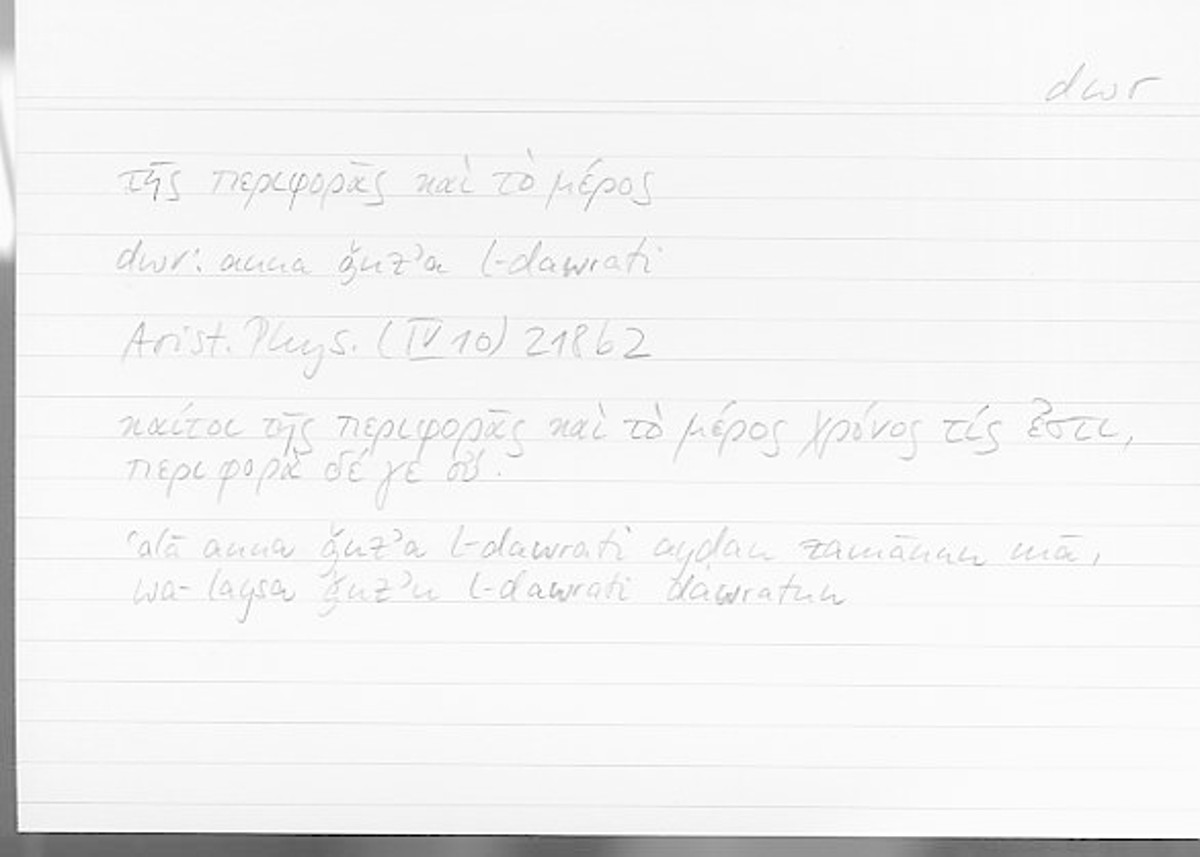 dwr
τῆς περιφορᾶς καὶ τὸ μέρος
dwr: anna ǧuzʾa l-dawrati
Arist. Phys. (IV 10) 218 b 2
καίτοι τῆς περιφορᾶς καὶ τὸ μέρος χρόνος τίς ἐστι,
περιφορὰ δέ γε οὔ.
ʿalā anna ǧuzʾa l-dawrati ayḍan zamānun mā,
wa-laysa ǧuzʾu l-dawrati dawratun